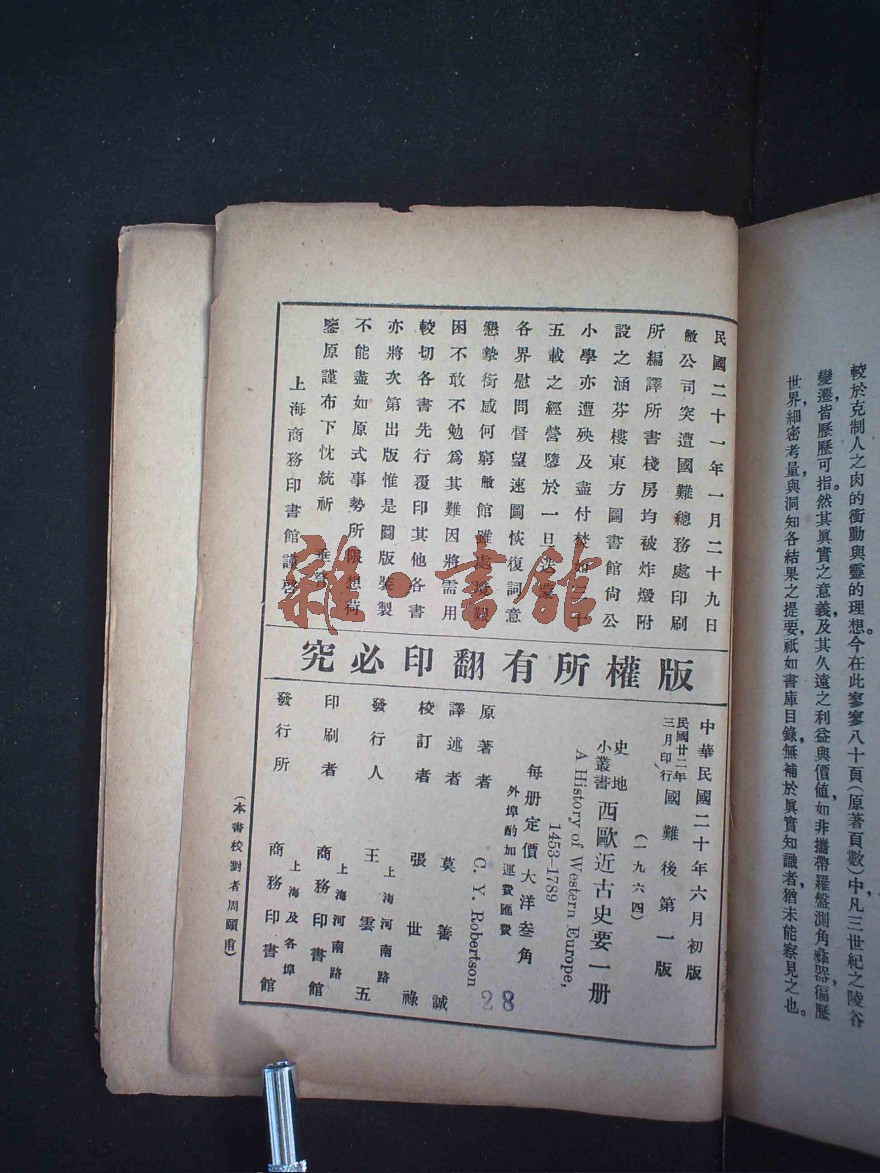 較於克制人之肉的衝動與靈的理想。今在此寥寥八十頁(原著頁數)中,凡三世紀之陵谷
變遷,皆歷歷可指。然其眞實之意義及其久遠之利益與價值,如非攜帶羅盤測角彝器,徧歷
世界,細密考量,與洞知各結果之提要,祇如書庫目錄,無補於眞實知識者,猶未能察見之也。
民國二十一年一月二十九日
敝公司突遭國難總務處印刷
所編譯所書棧房均被炸燬附
設之涵芬樓東方圖書館尙公
小學亦遭殃及盡付焚如三十
五載之經營隳於一旦迭蒙
各界慰問督望速圖恢復詞意
懇摯銜感何窮敝館雖處境艱
困不敢不勉爲其難因將需用
較切各書先行覆印其他各書
亦將次第出版惟是圖版裝製
不能盡如原式事勢所限想荷
鑒原謹布下忱統祈 垂詧
上海商務印書館謹啓
版權所有翻印必究
中華民國二十年六月初版
民國廿二年三月印行國難後第一版
(一九六四)
史地小叢書 西歐近古史要一册
A History of Western Europe,
1453-1789
每册定價大洋叁角
外埠酌加運費匯費
原著者 C. Y. Robertson
譯述者 莫善誠
校訂者 張世祿
發行人 王雲五
上海河南路
印刷者 商務印書館
上海河南路
發行所 商務印書館
上海及各埠
(本書校對者周頤甫)
28
雜·書館